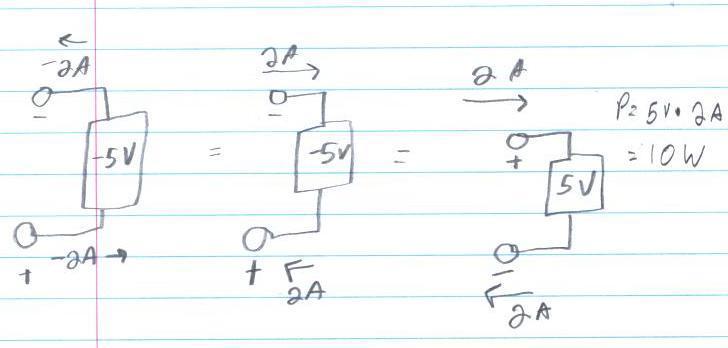 ←
-2A
-
-5V
+
-2A →
=
2A
→
-
-5V
+
←
2A
=
2 A
→
+
5V
-
←
2A
P= 5V • 2A
= 10W